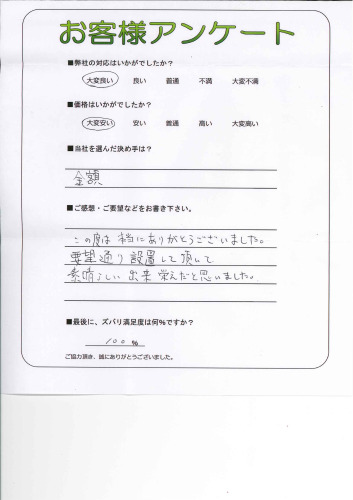 お客様アンケート
■弊社の対応はいかがでしたか?
大変良い 良い 普通 不満 大変不満
■価格はいかがでしたか?
大変安い 安い 普通 高い 大変高い
■当社を選んだ決め手は?
金額
■ご感想・ご要望などをお書き下さい。
この度は本当にありがとうございました。
要望通り設置して頂いて
素晴らしい出来栄えだと思いました。
■最後に、ズバリ満足度は何%ですか?
100%
ご協力頂き、誠にありがとうございました。